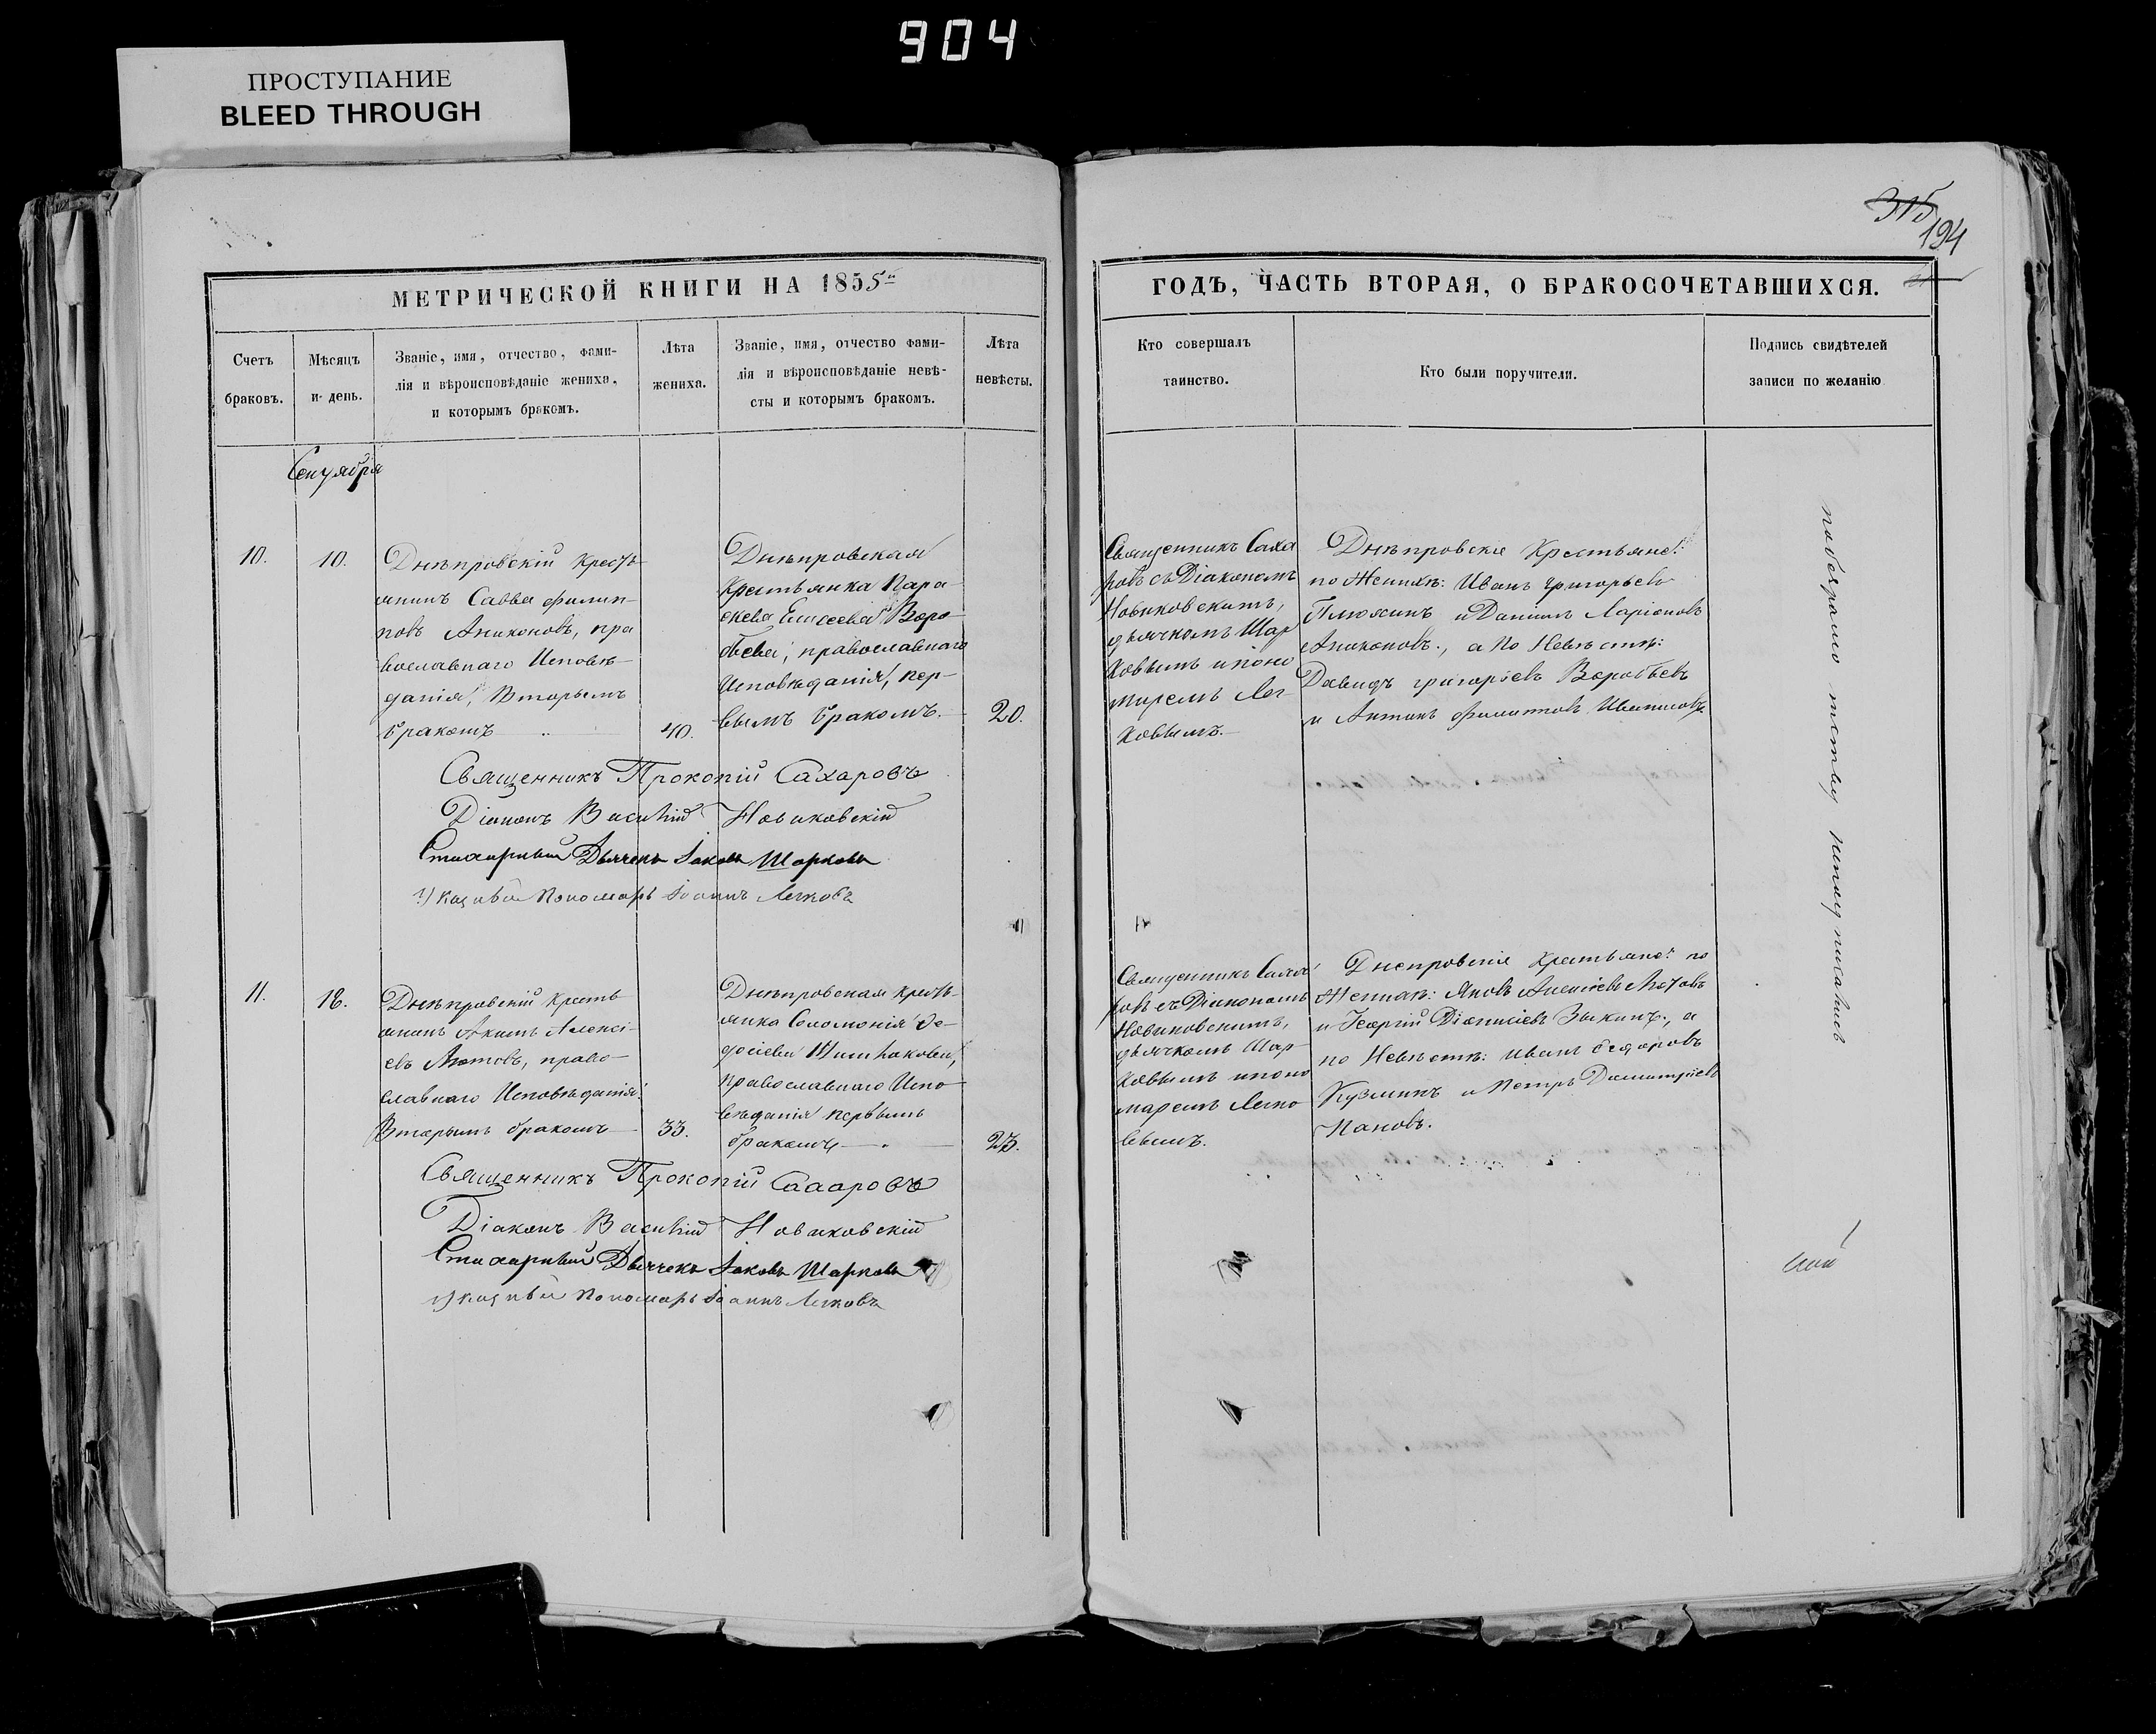 904
ПРОСТУПАНИЕ
BLEED THROUGH
315
194
МЕТРИЧЕСКОЙ КНИГИ НА 1855й
ГОДЪ, ЧАСТЬ ВТОРАЯ, О БРАКОСОЧЕТАВШИХСЯ.
Счетъ
браковъ.
Мѣсяцъ
и день.
Званіе, имя, отчество, фами-
лія и вѣроисповѣданіе жениха,
и которымъ бракомъ.
Лѣта
жениха.
Званіе, имя, отчество фами-
лія и вѣроисповѣданіе невѣ-
сты и которымъ бракомъ.
Лѣта
невѣсты.
Кто совершалъ
таинство.
Кто были поручители.
Подпись свидѣтелей
записи по желанію
Сентября
10.
10.
Днѣпровскій Кресть-
янинъ Савва Филип-
повъ Аниконовъ, пра
вославнаго Исповѣ-
данія, Вторымъ
бракомъ
40.
Днѣпровская
Крестьянка Пара-
скева Елисеева Воро-
бьева, православнаго
Исповѣданія, пер-
вымъ бракомъ.
20.
Священникъ Саха
ровъ съ Діакономъ
Новиковскимъ,
дьячкомъ Шар
ковымъ и поно
маремъ Лег-
ковымъ.
Днѣпровскіе Крестьяне:
по Женихѣ: Иванъ Григорьевъ
Плюхинъ и Даніилъ Ларіоновъ
Аниконовъ., а по Невѣстѣ:
Давидъ Григорьевъ Воробьевъ
и Антонъ Филиповъ
Священникъ Прокопій Сахаровъ
Діаконъ Василій Новиковскій
Стихарный Дьячекъ Іаковъ Шарковъ
Указный Пономарь Іоаннъ Легковъ
11.
18.
Днѣпровскій Кресть
янинъ Акимъ Алексі-
евъ Лютовъ, право-
славнаго Исповѣданія
Вторымъ бракомъ
33.
Днѣпровская кресть-
янка Соломонія Ѳе-
досіева Шишлакова,
православнаго Испо
вѣданія первымъ
бракомъ
23.
Священникъ Саха
ровъ съ Діакономъ
Новиковскимъ,
дьячкомъ Шар-
ковымъ и поно
маремъ Легко
вымъ.
Днепровскія Крестьяне: по
Женихѣ: Яковъ Алексіевъ Лютовъ
и Георгій Діонисіевъ Зыкинъ., а
по Невѣстѣ: Иванъ Ѳедоровъ
Кузминъ и Петръ Димитріевъ
Пановъ.
Священникъ Прокопій Сахаровъ
Діаконъ Василій Новиковскій
Стихарный Дьячекъ Іаковъ Шарковъ
Указный Пономарь Іоаннъ Легковъ